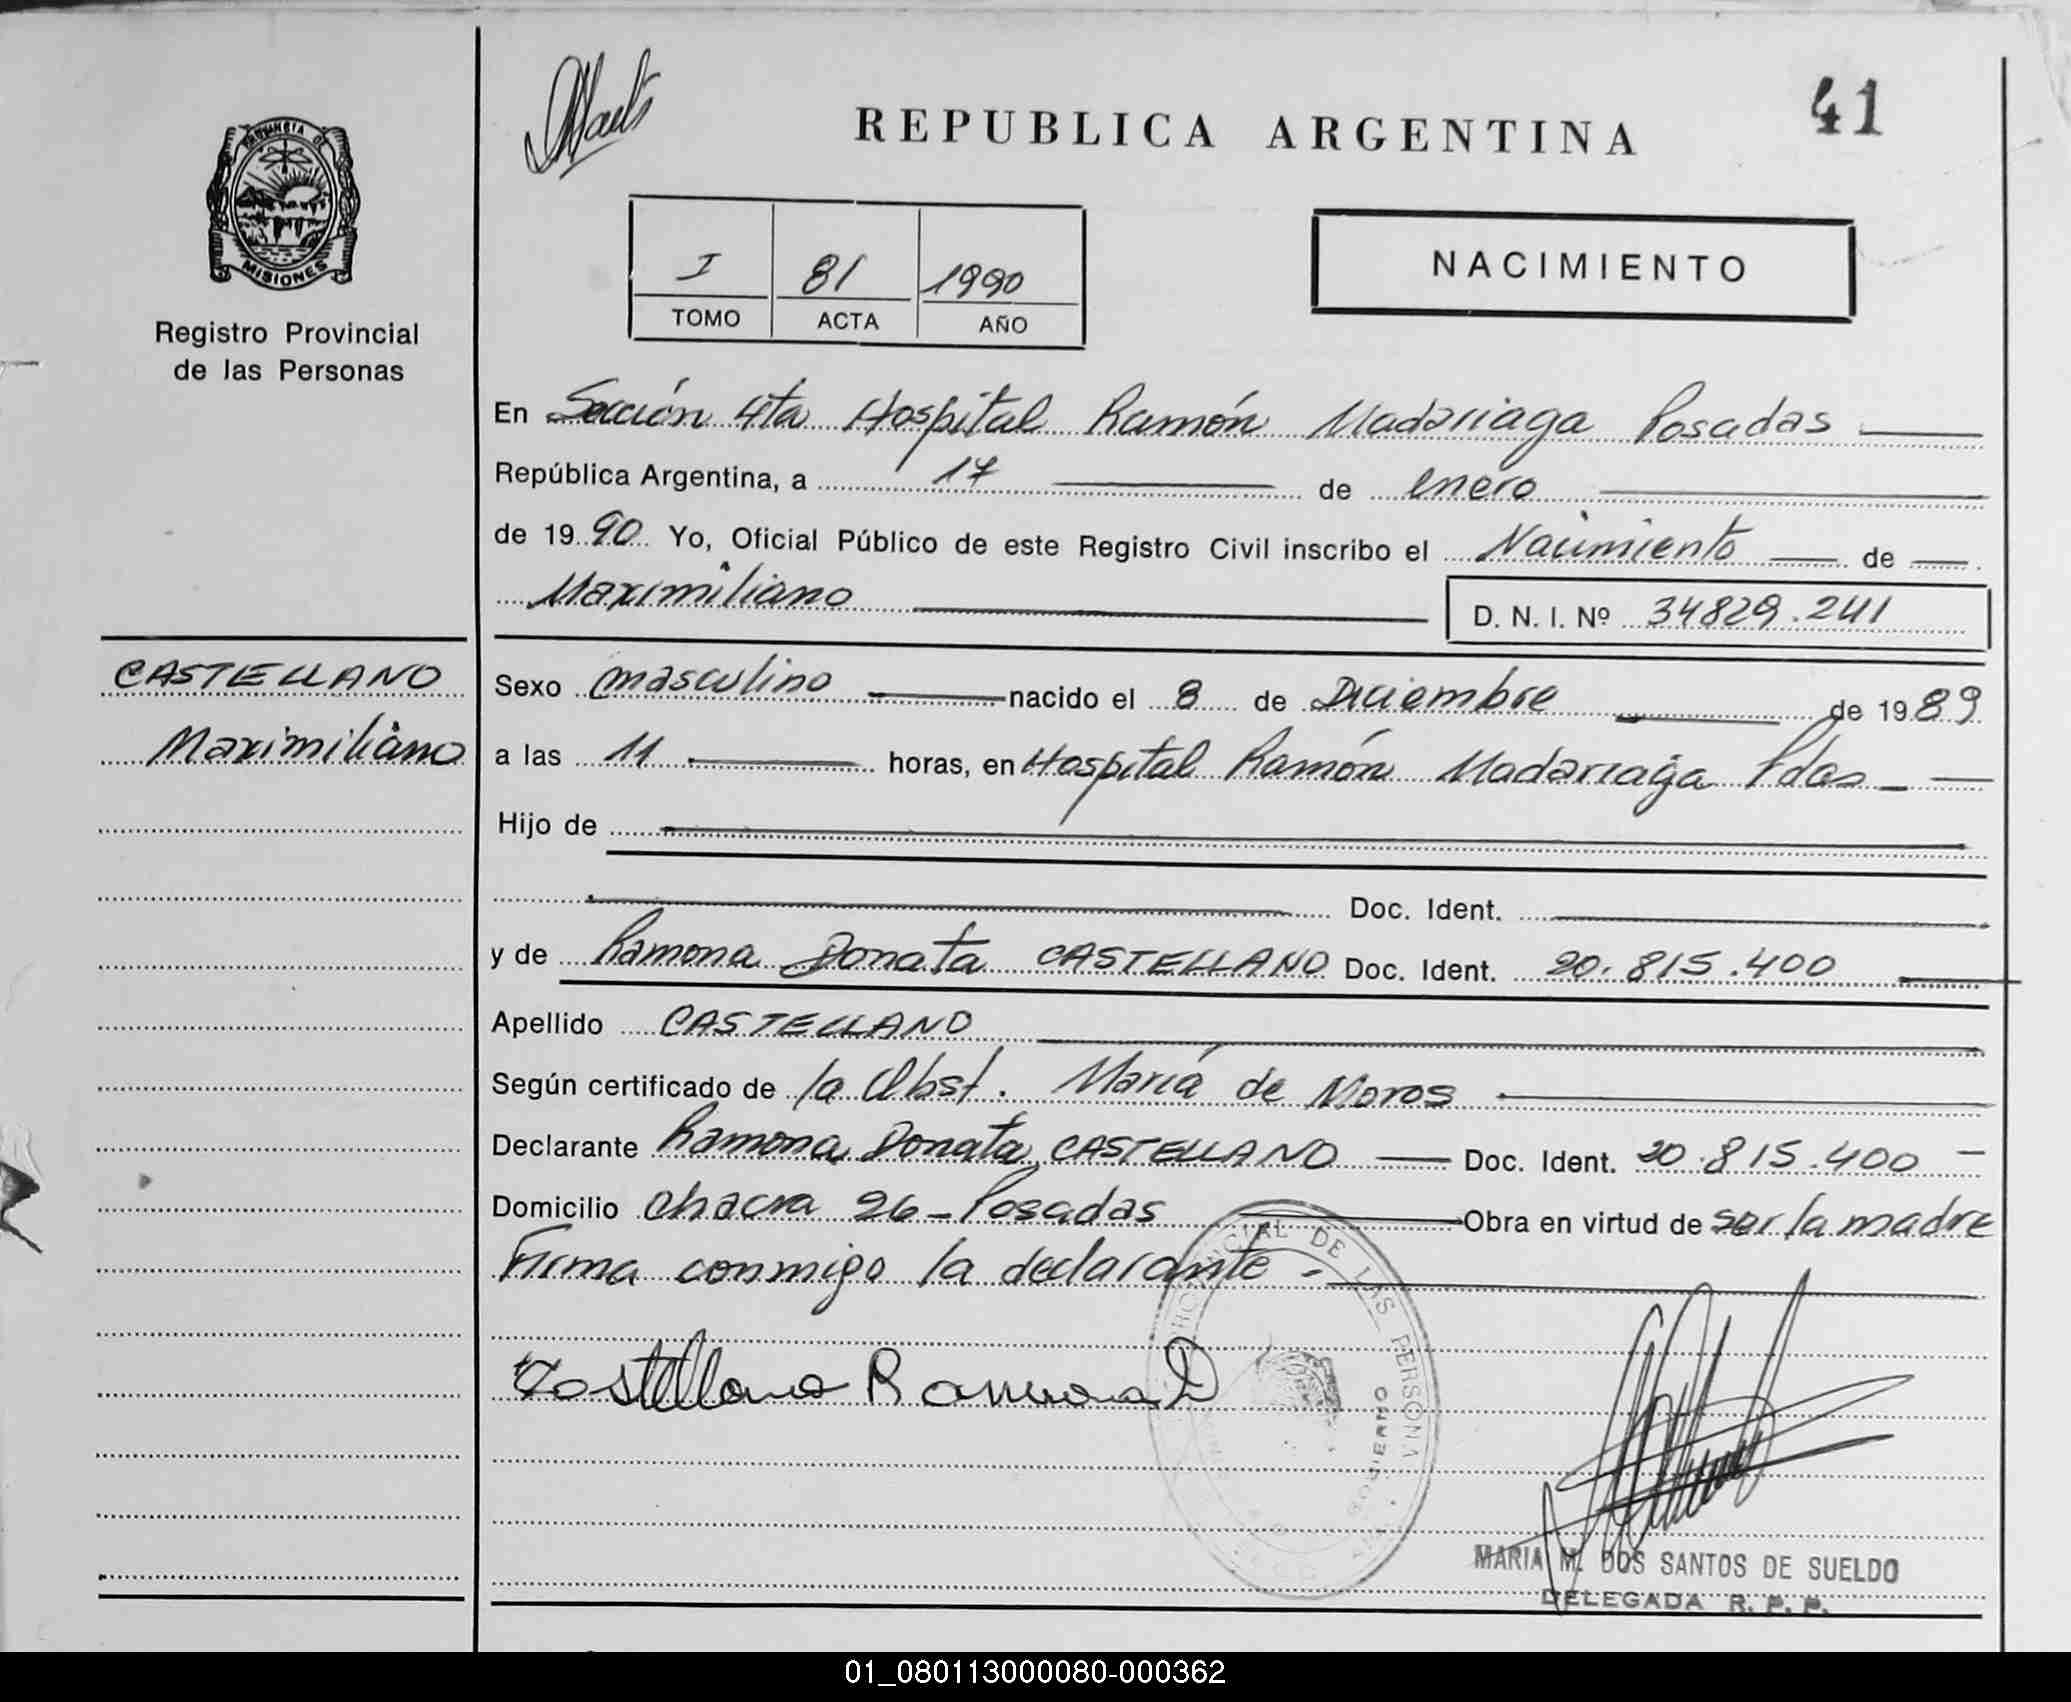 REPUBLICA ARGENTINA
41
PROVINCIA DE
MISIONES
Registro Provincial
de las Personas
I 81 1990
TOMO ACTA AÑO
NACIMIENTO
En Sección 4ta Hospital Ramón Madariaga Posadas
República Argentina, a 17 de enero
de 1990 Yo, Oficial Público de este Registro Civil inscribo el Nacimiento de
Maximiliano
D. N. I. Nº 34829.241
CASTELLANO
Maximiliano
Sexo masculino nacido el 8 de Diciembre de 1989
a las 11 horas, en Hospital Ramón Madariaga Pdas
Hijo de
Doc. Ident.
y de Ramona Donata CASTELLANO Doc. Ident. 20.815.400
Apellido CASTELLANO
Según certificado de la Obst. María de Moros
Declarante Ramona Donata CASTELLANO Doc. Ident. 20.815.400
Domicilio Chacra 26 - Posadas Obra en virtud de ser la madre
Firma conmigo la declarante -
Castellano Ramona D
PROVINCIAL DE LAS PERSONA
GOBIERNO
MARIA M. DOS SANTOS DE SUELDO
DELEGADA R. P. P.
01_080113000080-000362